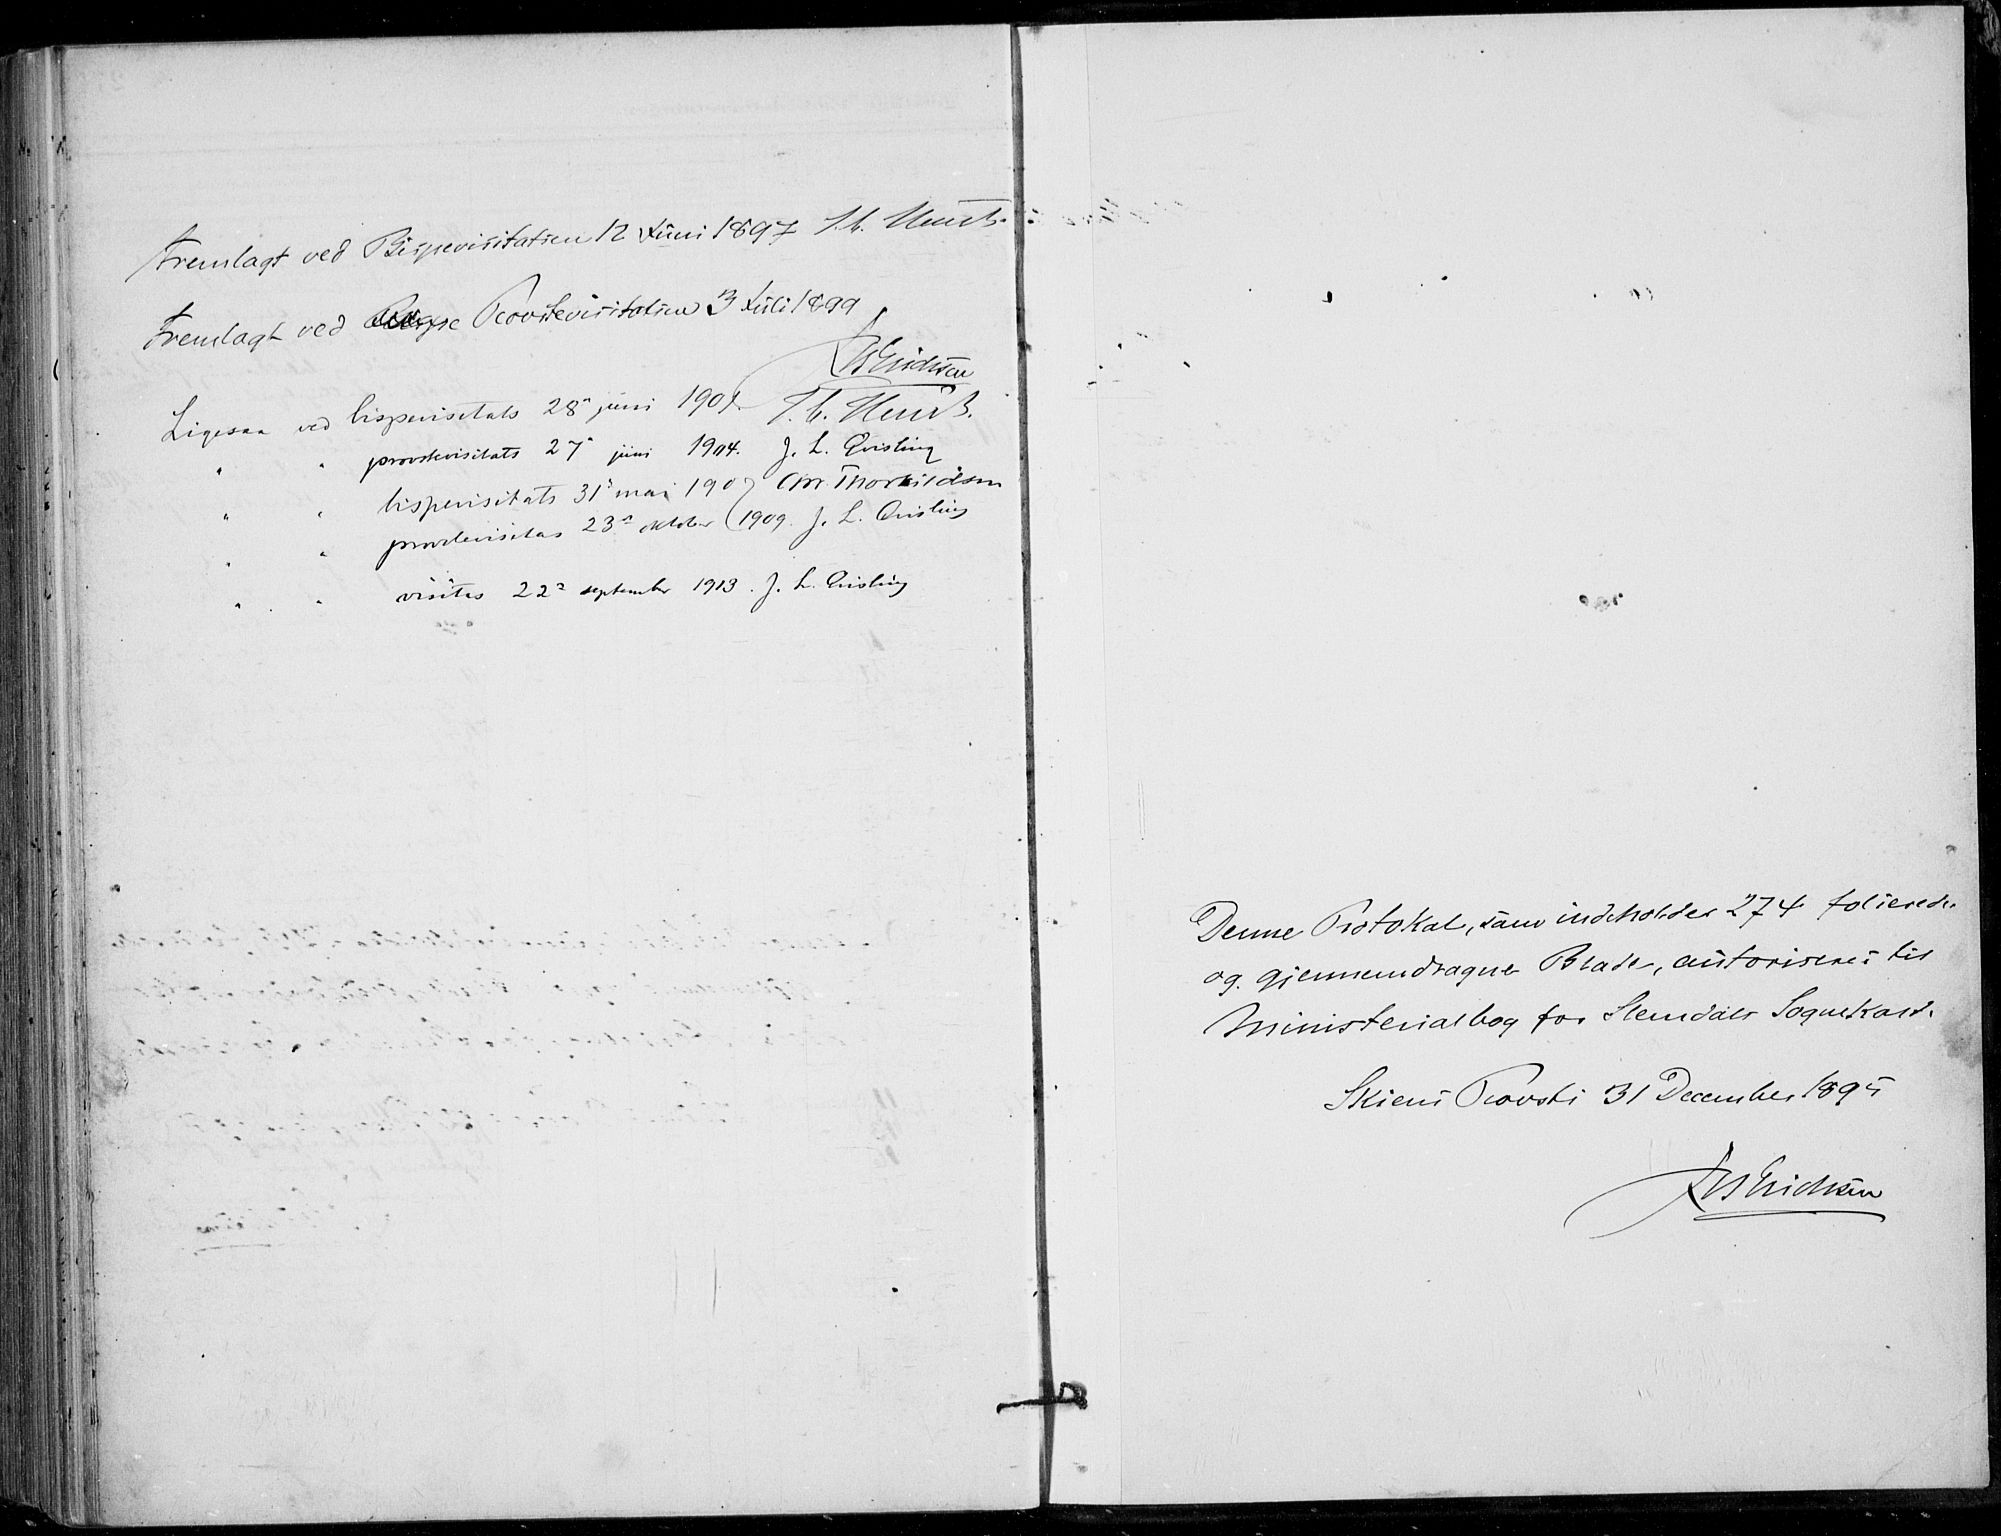 Fremlagt ved Bispevisitatsen 12 Juni 1897 J. C. Heuch.
Fremlagt ved Provstevisitatsen 3 Juli 1899
Erichsen
Ligesaa ved bispevisitats 28de juni 1901. J. C. Heuch.
" " provstevisitats 27de juni 1904. J. L. Qvisling
" " bispevisitats 31te mai 1907 Chr. Thorkildsen
" " provstevisitas 23de oktober 1909. J. L. Qvisling
" " visitas 22de september 1913. J. L. Qvisling
Denne Protokol, som indeholder 274 folierede
og gjennemdragne Blade, autoriseres til
Ministerialbog for Slemdals Sognekald.
Skiens Provsti 31 December 1895
Erichsen